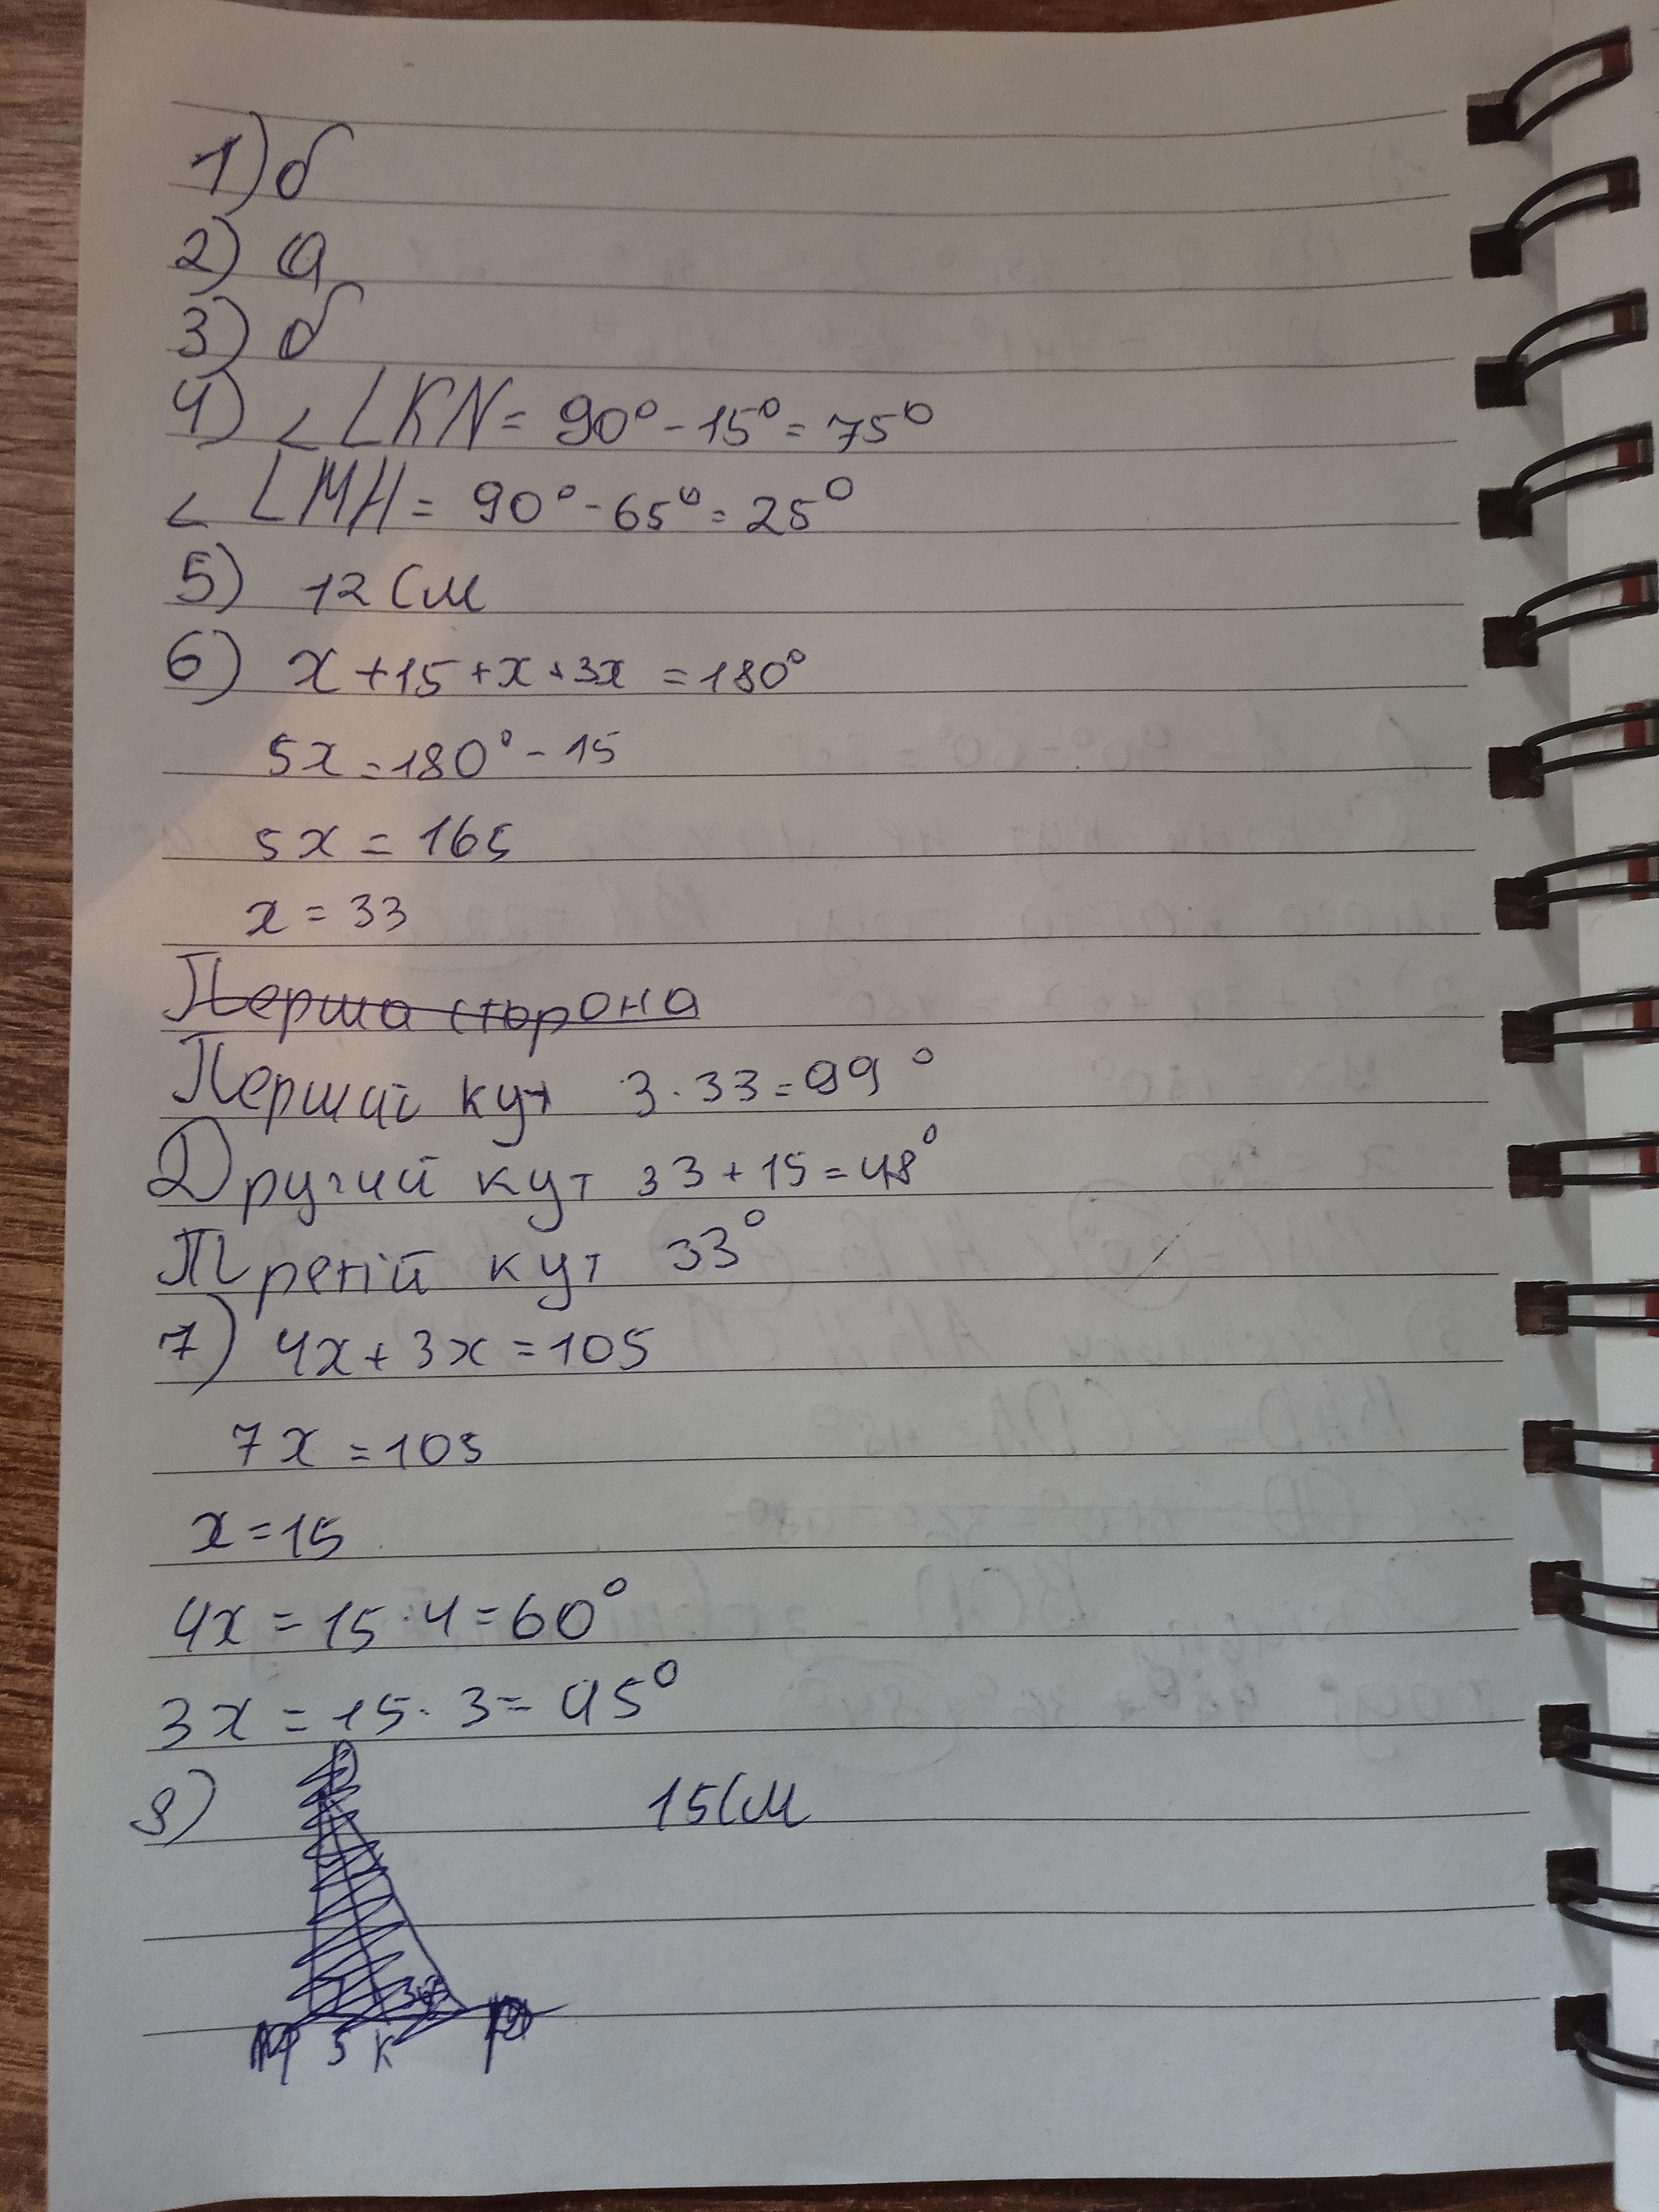 1) б
2) а
3) б
4) ∠LKN = 90° - 15° = 75°
∠LMH = 90° - 65° = 25°
5) 12 см
6) x + 15 + x + 3x = 180°
5x = 180° - 15
5x = 165
x = 33
Перша сторона
Перший кут 3 · 33 = 99°
Другий кут 33 + 15 = 48°
Третій кут 33°
7) 4x + 3x = 105
7x = 105
x = 15
4x = 15 · 4 = 60°
3x = 15 · 3 = 45°
8) 15 см
5 K